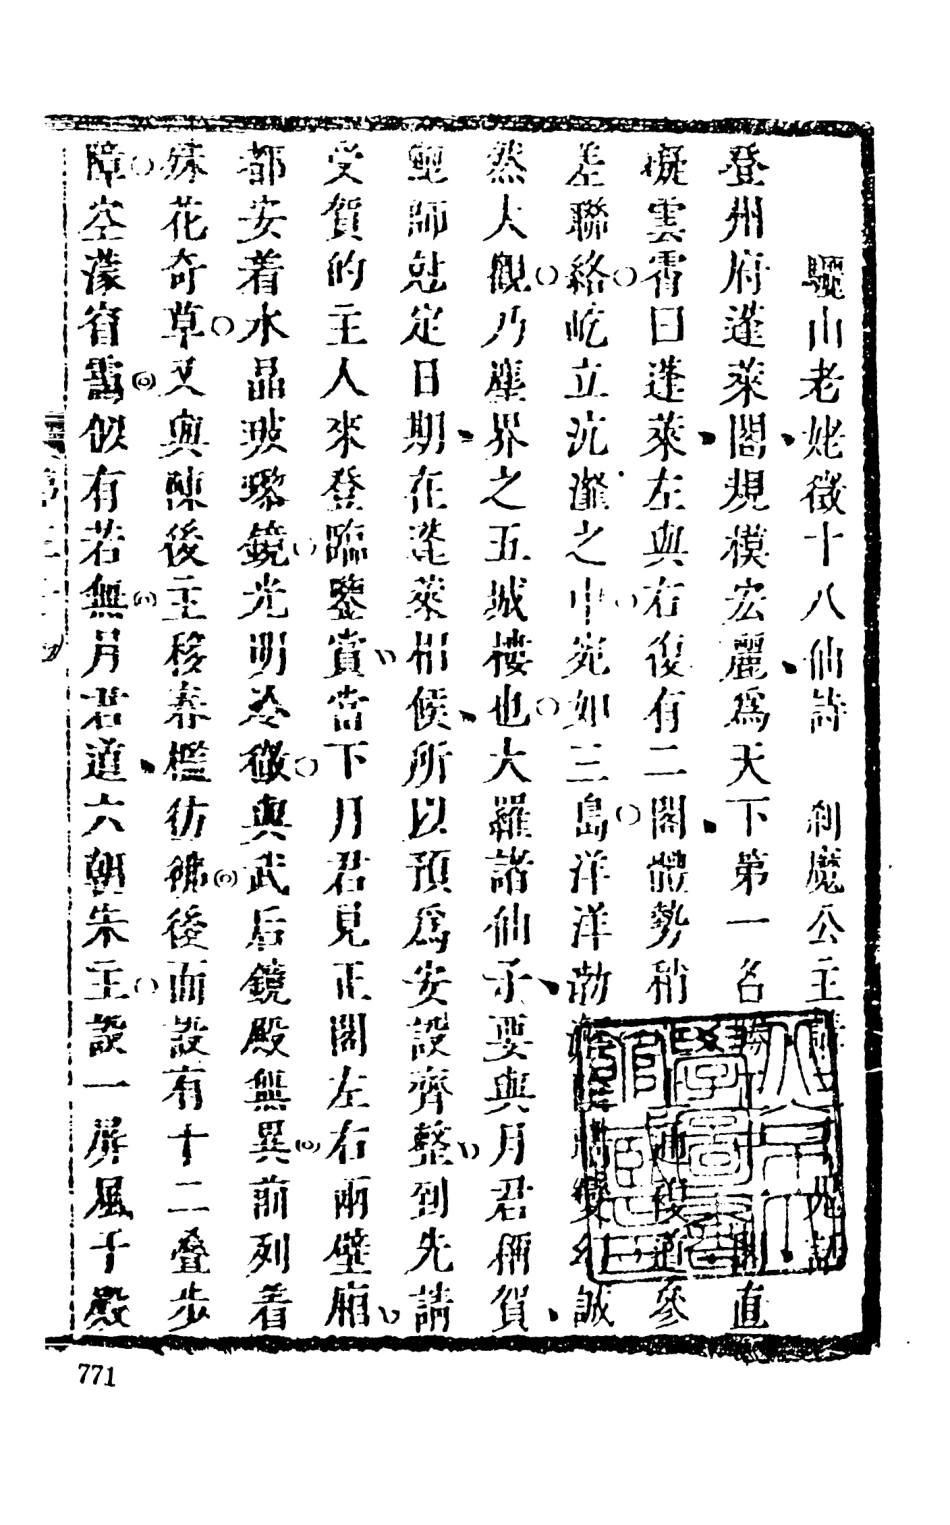 驪山老姥徵十八仙詩　剎魔公主
登州府蓬萊閣規模宏麗爲天下第一名勝直
凝雲霄曰蓬萊左與右復有二閣體勢稍複道參
差聯絡屹立沆瀣之中宛如三島洋洋勃誠
然大觀乃塵界之五城樓也大羅諸仙子要與月君稱賀
鮑師尅定日期在蓬萊相候所以預爲安設齊整到先請
受賀的主人來登臨鑒賞當下月君見正閣左右兩壁廂
都安着水晶玻瓈鏡光明冷徹與武后鏡殿無異前列着
殊花奇草又與陳後主移春檻彷彿後面設有十二叠步
障空濛宿靄似有若無月君道六朝朱主設一屏風于殿
771